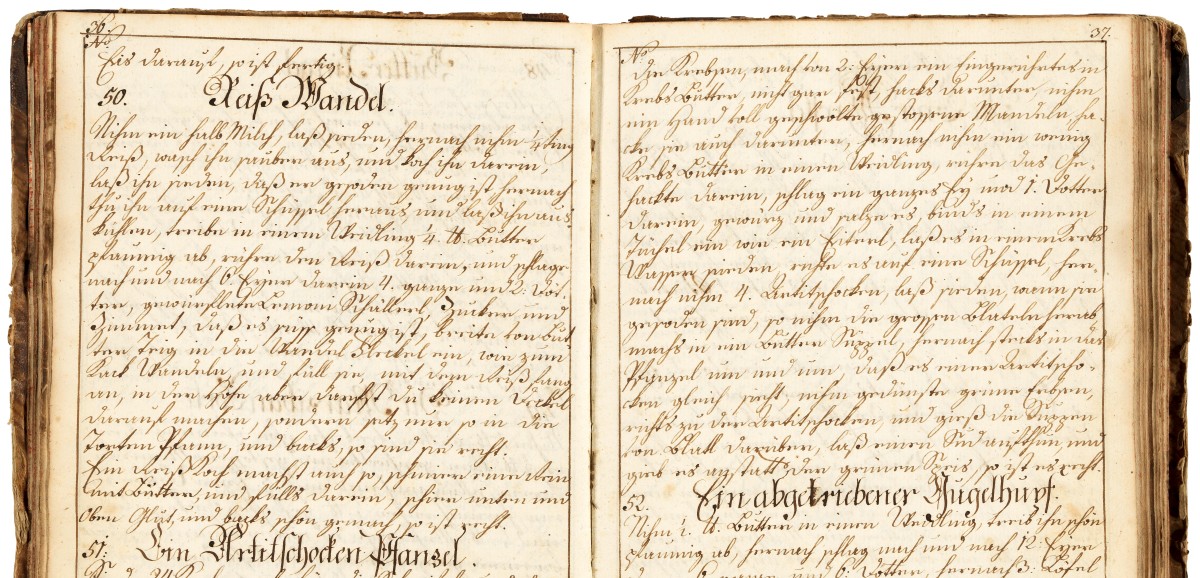 36.
No.
Eis darauf, so ist fertig.
50. Reiß Wandel.
Nihm ein halb Milch, laß sieden, hernach nihm 1/4tung
Reiß, wasch ihn sauber aus, und koch ihn darein,
laß ihn sieden, daß er gesoden genug ist, hernach
thu ihn auf eine Schüssel heraus und laß ihn aus
kühlen, treibe in einem Weidling 1/4 tt. Butter
pflaumig ab, rühre den Reiß darein, und schlage
nach und nach 6. Eyer darein 4. ganze und 2. Dot-
ter, gewürflete Lemoni Schällerl, Zucker und
Zimmet, daß es süss genug ist, breite von But-
ter Teig in die Wandel Fleckel ein, wie zum
Wandeln, und füll sie mit dem Reiß
an, in der Höhe aber darfst du keinen Deckel
darauf machen, sondern setz nur so in die
Torten Pfann, und backs, so sind sie recht.
Ein Reiß Koch machst auch so, schmier eine Rein
mit Butter, und fülls darein, schier unten und
oben Glut, und backs schön gemach, so ist recht.
51. Ein Artitschocken Pfanzel.
37.
No
die Krebsen, mach von 2. Eyer ein Eingerührtes in
Krebs Butter, nicht gar fest, hacks darunter, nihm
ein Hand voll geschwölte gestossene Mandeln, ha-
cke sie auch darunter, hernach nihm ein wenig
Krebs Butter in einen Weidling, rühre das Ge-
hackte darein, schlag ein ganzes Ey und 1. Dotter
darein, gewürz und salze es, binds in einem
Tüchel ein wie ein Eiterl, laß es in einem Krebs
Wasser sieden, richte es auf eine Schüssel, her-
nach nihm 4. Artitschocken, laß sieden, wann sie
gesoden sind, so nihm die grossen Blateln herab
machs in ein Butter Süppel, hernach stecks in das
Pfanzel um und um, daß es einer Artitscho-
cken gleich sieht, nihm gedünste grüne Erbsen,
richts zu der Artitschocken, und gieß die Suppen
von Blatt darüber, laß einen Sud aufthun und
gieb es anstatt der grünen Speis, so ist es recht.
52. Ein abgetriebener Gugelhupf.
Nihm 1. tt. Butter in einen Weidling, treib ihn schön
pflaumig ab, hernach schlag nach und nach 12. Eyer
6. ganze und 6. Dotter, hernach 3. Löfel